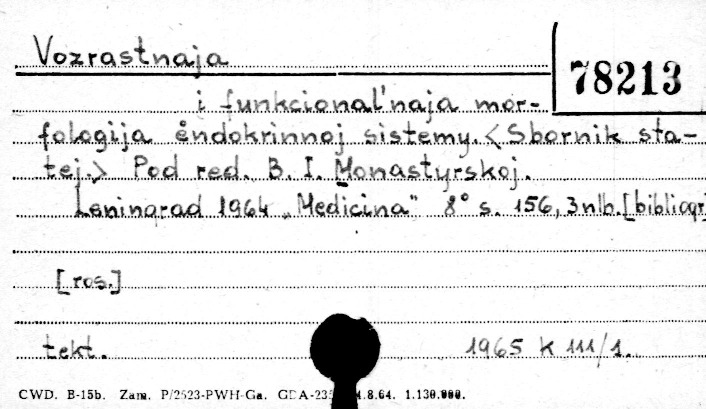 Vozrastnaja
78213
i funkcional'naja mor-
fologija ėndokrinnoj sistemy. <Sbornik sta-
tej.> Pod red. B. I. Monastyrskoj.
Leningrad 1964 „Medicina" 8° s. 156, 3 nlb. [bibliogr
[ros.]
tekt. 1965 K 111/1.
CWD. B-15b. Zam. P/2523-PWH-Ga. GDA-235 .8.64. 1.130.000.